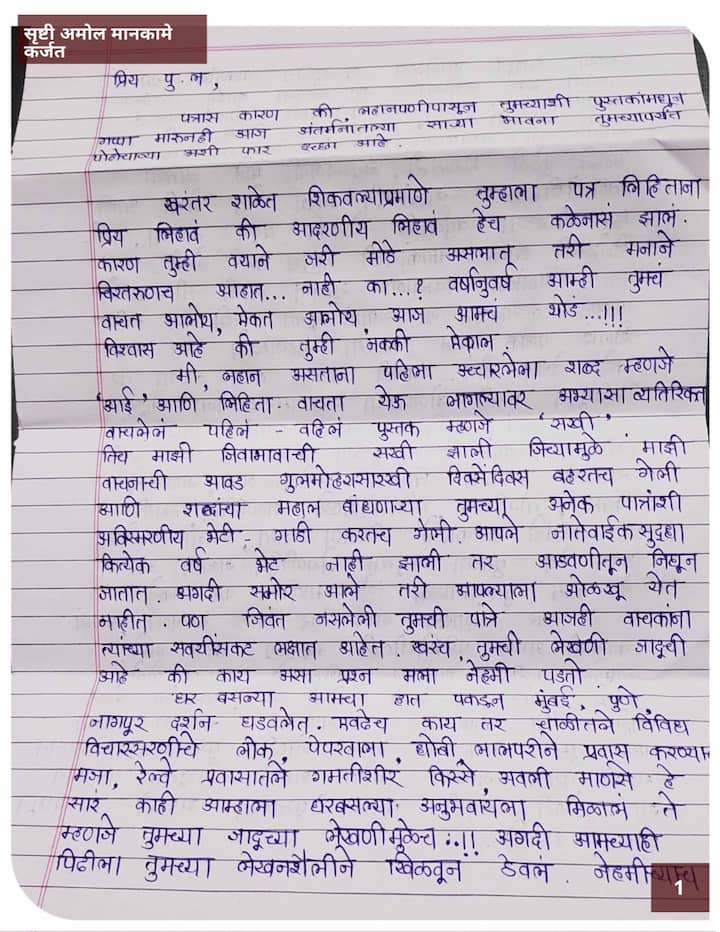 सृष्टी अमोल मानकामे
कर्जत
प्रिय पु. ल ,
पत्रास कारण की लहानपणीपासून तुमच्याशी पुस्तकांमधून
गप्पा मारूनही आज अंतर्मनातल्या साऱ्या भावना तुमच्यापर्यंत
पोहोचाव्या अशी फार इच्छा आहे.
खरंतर शाळेत शिकवल्याप्रमाणे तुम्हाला पत्र लिहिताना
प्रिय लिहावं की आदरणीय लिहावं हेच कळेनासं झालं.
कारण तुम्ही वयाने जरी मोठे असलात तरी मनाने
चिरतरुणच आहात... नाही का...? वर्षानुवर्षे आम्ही तुमचं
वाचत आलोय, ऐकत आलोय आज आमचं थोडं...!!!
विश्वास आहे की तुम्ही नक्की ऐकाल.
मी, लहान असताना पहिला उच्चारलेला शब्द म्हणजे
'आई' आणि लिहिता-वाचता येऊ लागल्यावर अभ्यासाव्यतिरिक्त
वाचलेलं पहिलं - वहिलं पुस्तक म्हणजे 'सखी'
तिच माझी जिवाभावाची सखी झाली जिच्यामुळे माझी
वाचनाची आवड गुलमोहरासारखी दिवसेंदिवस बहरतच गेली
आणि शब्दांचा महाल बांधणाऱ्या तुमच्या अनेक पात्रांशी
अविस्मरणीय भेटी - गाठी करतच गेली. आपले नातेवाईकसुद्धा
कित्येक वर्ष भेट नाही झाली तर आठवणीतून निघून
जातात. अगदी समोर आले तरी आपल्याला ओळखू येत
नाहीत. पण जिवंत नसलेली तुमची पात्रे आजही वाचकांना
त्यांच्या सवयींसकट लक्षात आहेत. खरंच, तुमची लेखणी जादूची
आहे की काय असा प्रश्न मला नेहमी पडतो.
घर बसल्या आमचा हात पकडून मुंबई, पुणे
नागपूर दर्शन घडवलेत. एवढेच काय तर चाळीतले विविध
विचारसरणीचे लोक, पेपरवाला, धोबी, लालपरीने प्रवास करण्या
मजा, रेल्वे प्रवासातले गमतीशीर किस्से, अवली माणसे हे
सारं काही आम्हाला घरबसल्या अनुभवायला मिळालं ते
म्हणजे तुमच्या जादूच्या लेखणीमुळेच..!! अगदी आमच्याही
पिढीला तुमच्या लेखनशैलीने खिळवून ठेवलं. नेहमीच्याच
1